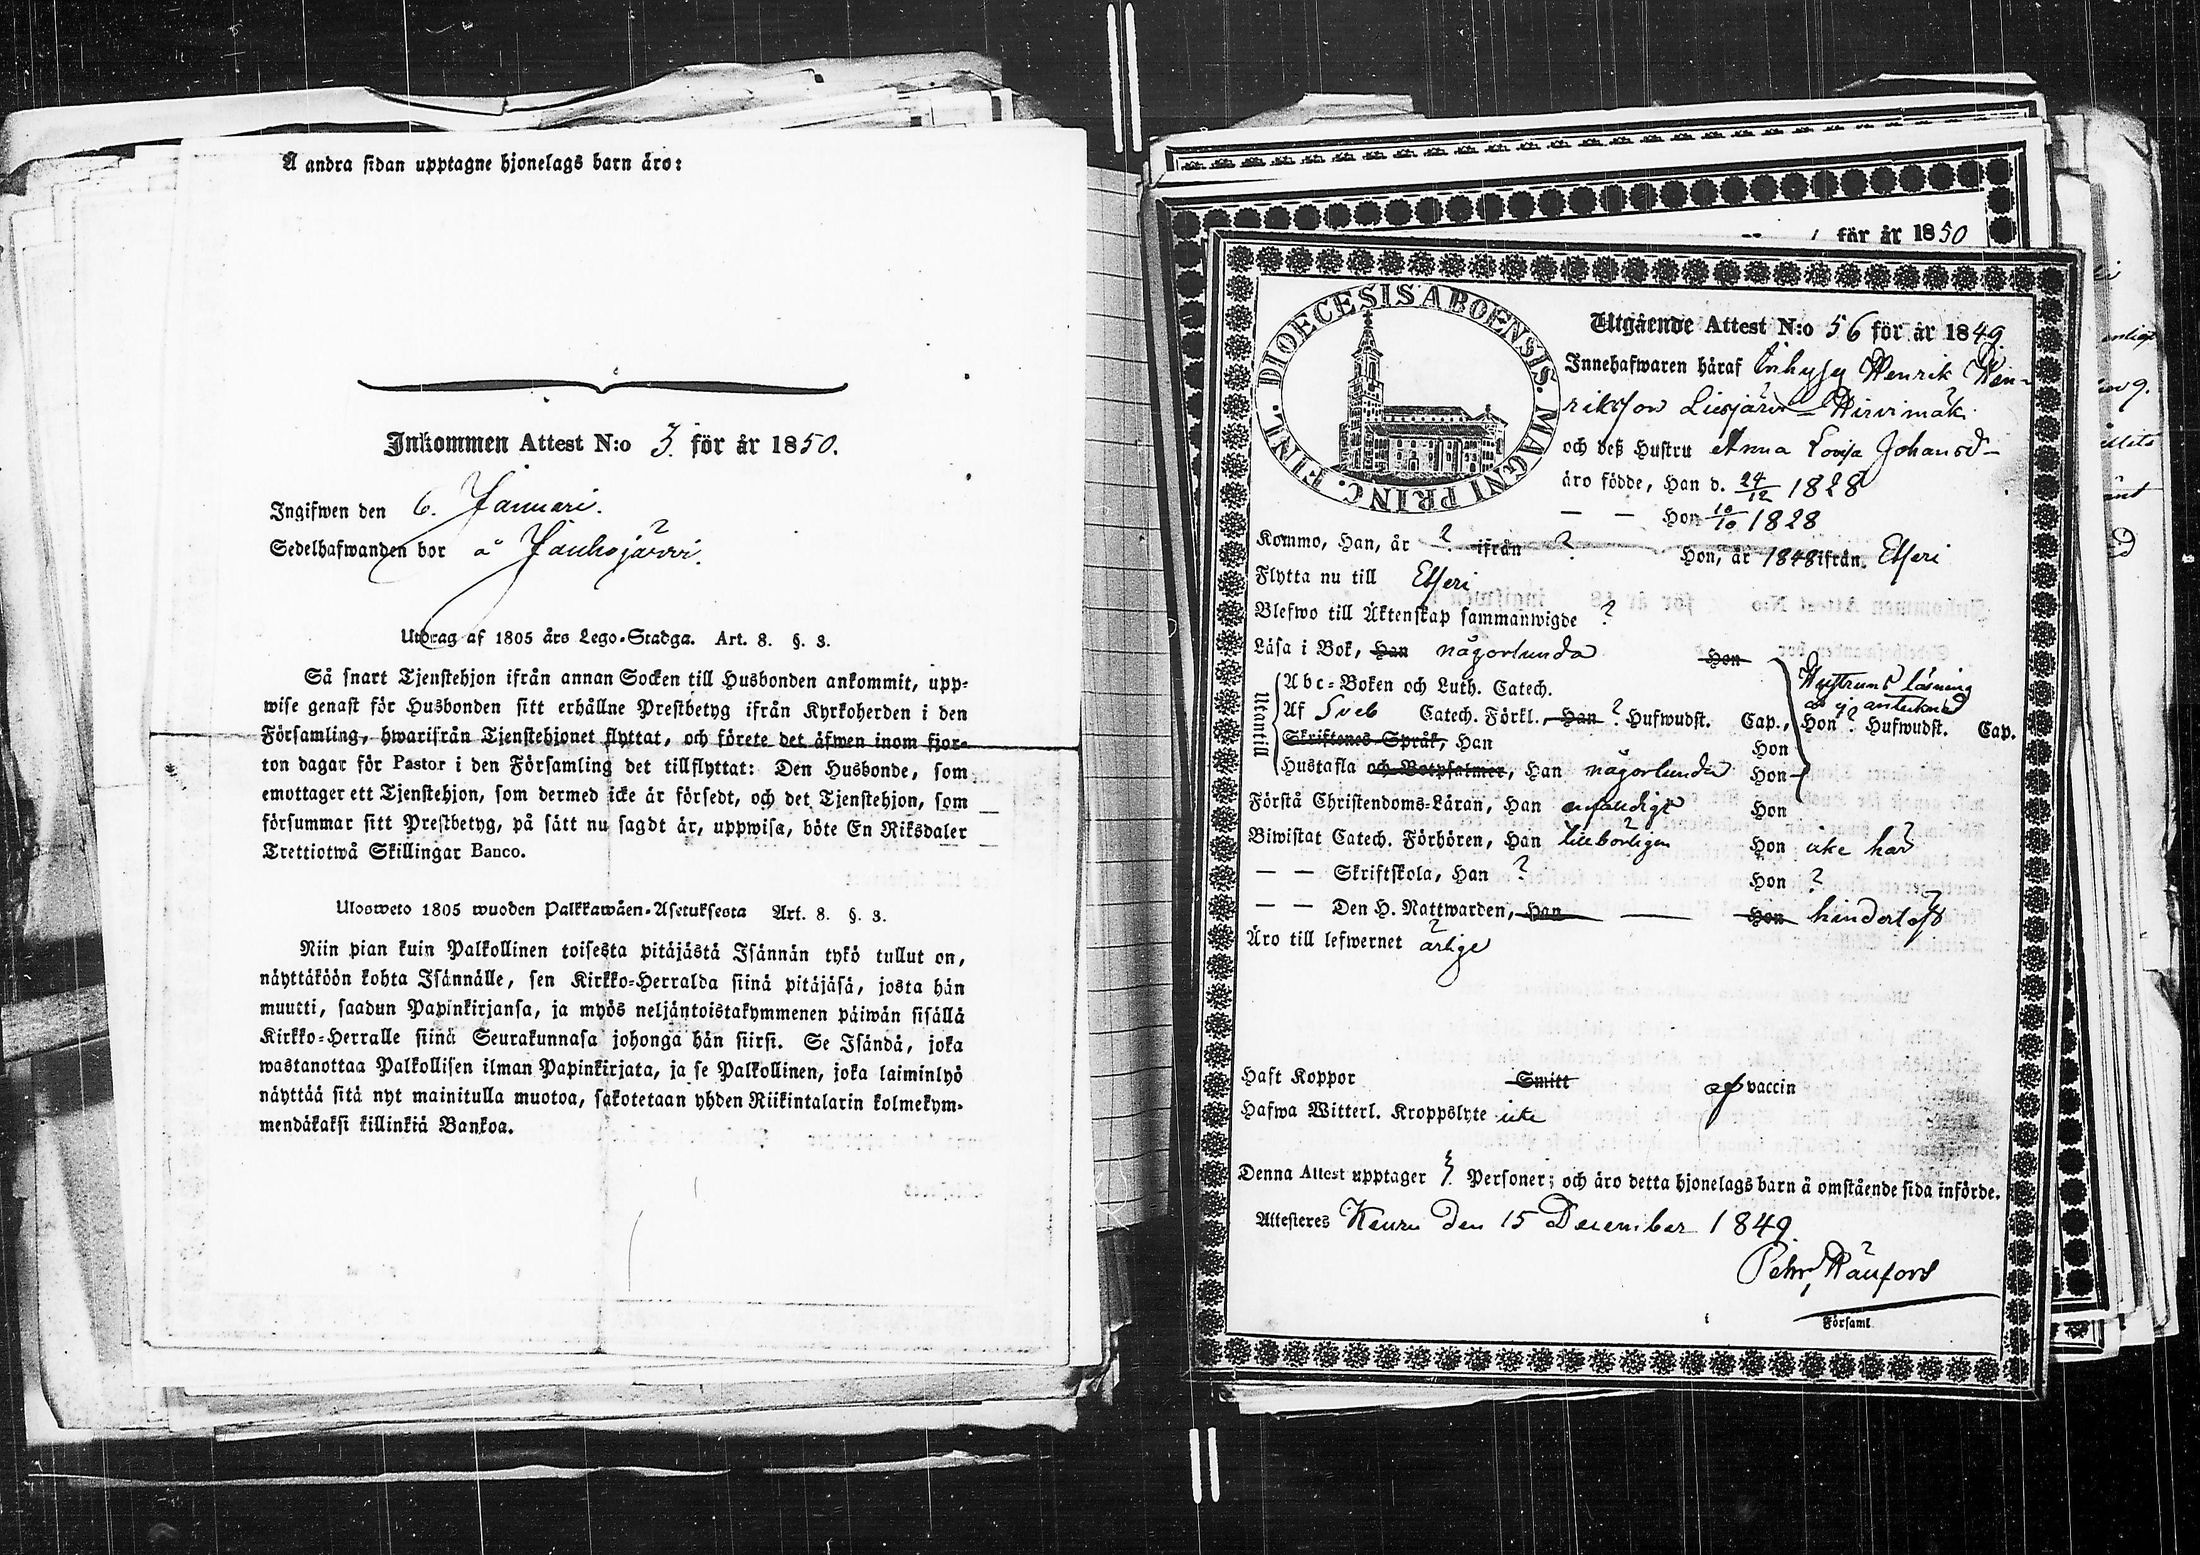 Å andra sidan upptagne hjonelags barn äro:
Inkommen Attest N:o 3. för år 1850.
Ingifwen den 6. Januari.
Sedelhafwanden bor å
Utdrag af 1805 års Lego-Stadga. Art. 8. §. 3.
Så snart Tjenstehjon ifrån annan Socken till Husbonden ankommit, upp-
wise genast för Husbonden sitt erhållne Prestbetyg ifrån Kyrkoherden i den
Församling, hwarifrån Tjenstehjonet flyttat, och förete det äfwen inom fjor-
ton dagar för Pastor i den Församling det tillflyttat: Den Husbonde, som
emottager ett Tjenstehjon, som dermed icke är försedt, och det Tjenstehjon, som
försummar sitt Prestbetyg, på sätt nu sagdt är, uppwisa, böte En Riksdaler
Trettiotwå Skillingar Banco.
Ulosweto 1805 wuoden Palkkawäen-Asetuksesta Art. 8. §. 3.
Niin pian kuin Palkollinen toisesta pitäjästä Isännän tykö tullut on,
näyttäköön kohta Isännälle, sen Kirkko-Herralda siinä pitäjäsä, josta hän
muutti, saadun Papinkirjansa, ja myös neljäntoistakymmenen päiwän sisällä
Kirkko-Herralle siinä Seurakunnasa johonga hän siirsi. Se Isändä, joka
wastanottaa Palkollisen ilman Papinkirjata, ja se Palkollinen, joka laiminlyö
näyttää sitä nyt mainitulla muotoa, sakotetaan yhden Riikintalarin kolmekym-
mendäkaksi killinkiä Bankoa.
för år 1850
DIOECESIS ABOENSIS. MAGNI PRINC. FINL.
Utgående Attest N:o 56 för år 1849.
Innehafwaren häraf Inhysg Henrik Hen-
riksson Liesjärvi Hirvimäki
och deß Hustru Anna Lovisa Johansd
äro födde, Han d. 24/12 1828
— — Hon 10/10 1828
Kommo, Han, år ? ifrån ? Hon, år 1848 ifrån Etseri
Flytta nu till Etseri
Blefwo till Äktenskap sammanwigde ?
Läsa i Bok, Han någorlunda Hon
Utantill
Abc-Boken och Luth. Catech.
Hustruns läsning
är ej antecknad
Af Sveb Catech. Förkl., Han ? Hufwudst. Cap., Hon ? Hufwudst. Cap.
Skriftenes Språk, Han Hon
Hustafla och Botpsalmer, Han någorlunda Hon
Förstå Christendoms-Läran, Han Hon
Biwistat Catech. Förhören, Han tillbörligen Hon icke här
— — Skriftskola, Han ? Hon ?
— — Den H. Nattwarden, Han — Hon
Äro till lefwernet ärlige
Haft Koppor Smitt af vaccin
Hafwa Witterl. Kroppslyte icke
Denna Attest upptager Personer; och äro detta hjonelags barn å omstående sida införde.
Attesteres Keuru den 15 December 1849.
Pehr
Församl